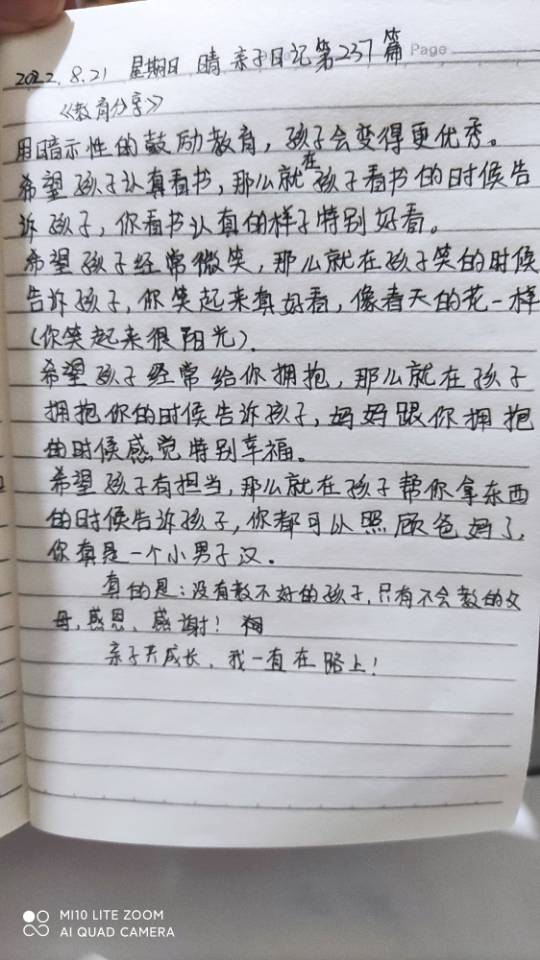 2022.8.21 星期日 晴 亲子日记第237篇 Page
《教育分享》
用暗示性的鼓励教育，孩子会变得更优秀。
希望孩子认真看书，那么就在孩子看书的时候告
诉孩子，你看书认真的样子特别好看。
希望孩子经常微笑，那么就在孩子笑的时候
告诉孩子，你笑起来真好看，像春天的花一样
（你笑起来很阳光）.
希望孩子经常给你拥抱，那么就在孩子
拥抱你的时候告诉孩子，妈妈跟你拥抱
的时候感觉特别幸福。
希望孩子有担当，那么就在孩子帮你拿东西
的时候告诉孩子，你都可以照顾爸妈了，
你真是一个小男子汉.
真的是：没有教不好的孩子，只有不会教的父
母，感恩、感谢！
亲子共成长，我一直在路上！
MI10 LITE ZOOM
AI QUAD CAMERA